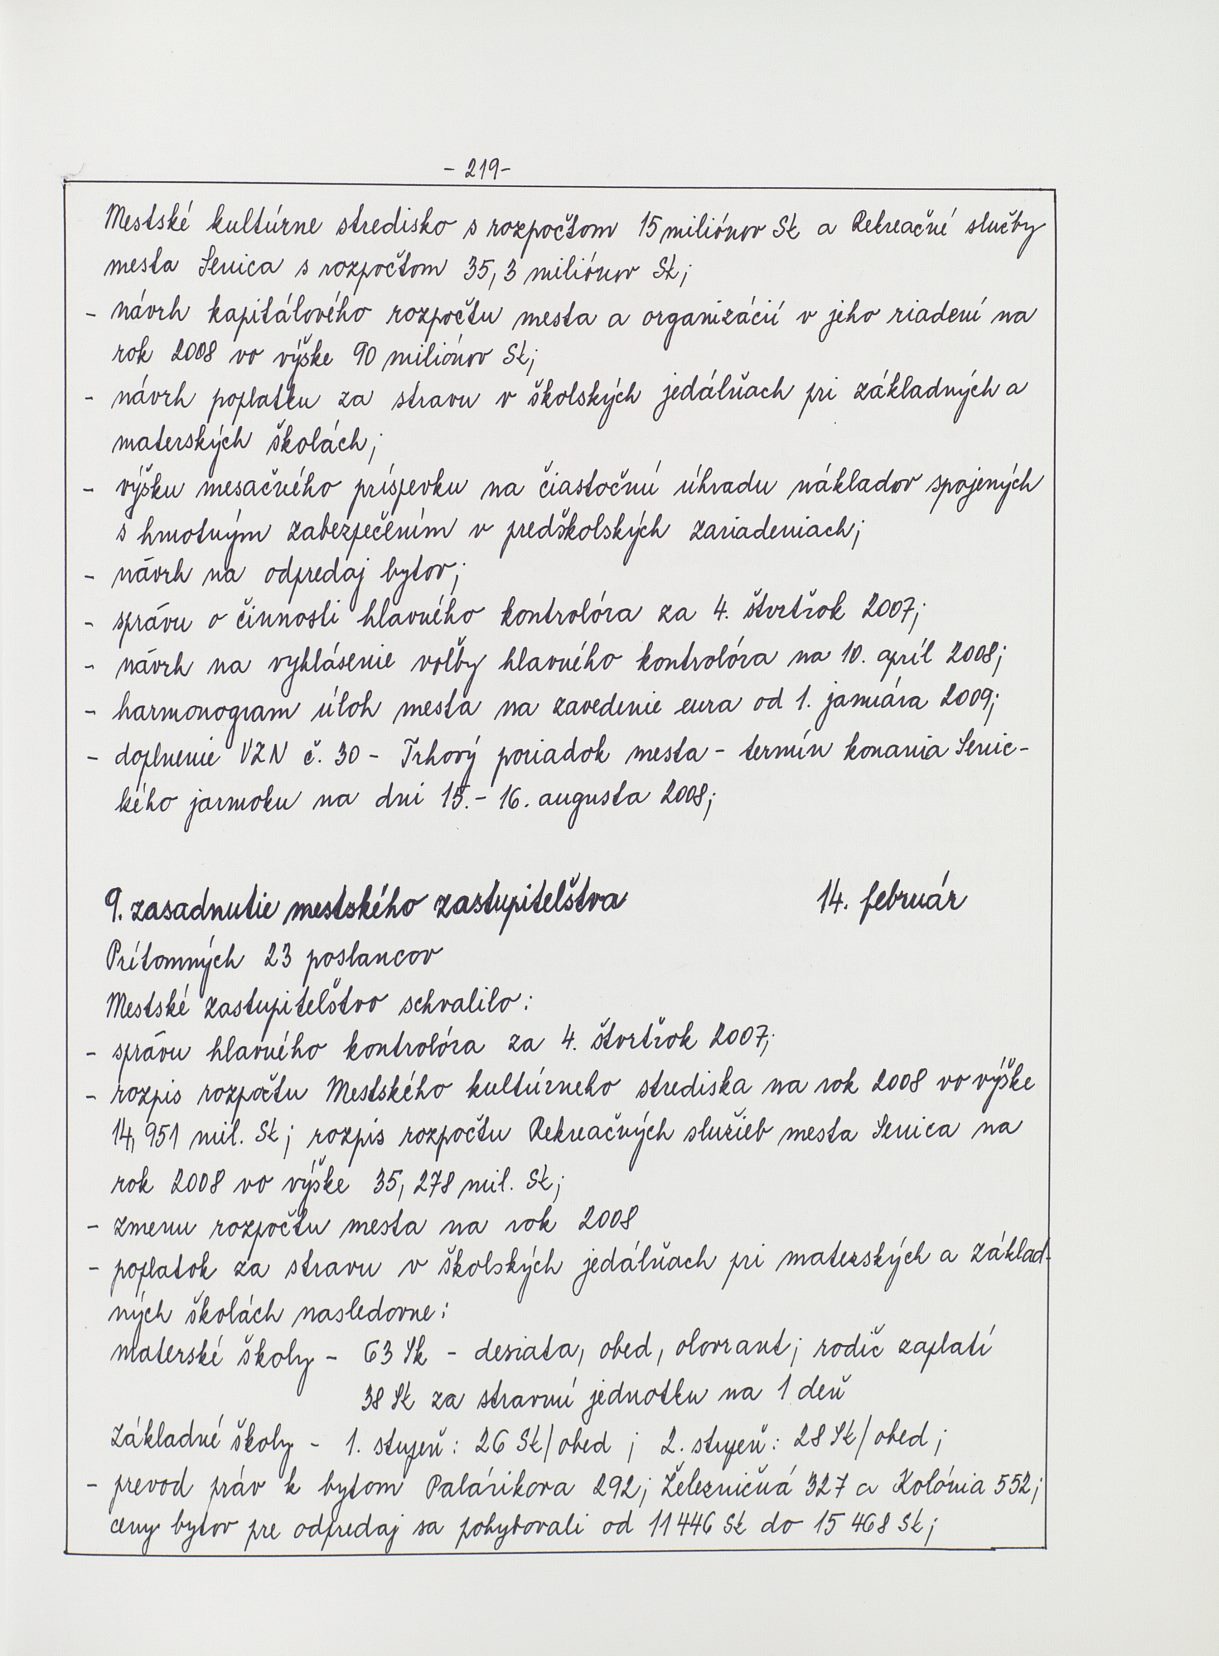 - 219 -
Mestské kultúrne stredisko s rozpočtom 15 miliónov Sk a Rekreačné služby
mesta Senica s rozpočtom 35,3 miliónov Sk;
- návrh kapitálového rozpočtu mesta a organizácií v jeho riadení na
rok 2008 vo výške 90 miliónov Sk;
- návrh poplatku za stravu v školských jedálňach pri základných a
materských školách;
- výšku mesačného príspevku na čiastočnú úhradu nákladov spojených
s hmotným zabezpečením v predškolských zariadeniach;
- návrh na odpredaj bytov;
- správu o činnosti hlavného kontrolóra za 4. štvrťrok 2007;
- návrh na vyhlásenie voľby hlavného kontrolóra na 10. apríl 2008;
- harmonogram úloh mesta na zavedenie eura od 1. januára 2009;
- doplnenie VZN č. 30 - Trhový poriadok mesta - termín konania Senic-
kého jarmoku na dni 15.- 16. augusta 2008;
9. zasadnutie mestského zastupiteľstva 14. február
Prítomných 23 poslancov
Mestské zastupiteľstvo schvalilo:
- správu hlavného kontrolóra za 4. štvrťrok 2007;
- rozpis rozpočtu Mestského kultúrneho strediska na rok 2008 vo výške
14,951 mil. Sk; rozpis rozpočtu Rekreačných služieb mesta Senica na
rok 2008 vo výške 35,278 mil. Sk;
- zmenu rozpočtu mesta na rok 2008
- poplatok za stravu v školských jedálňach pri materských a základ-
ných školách nasledovne:
materské školy - 63 Sk - desiata, obed, olovrant; rodič zaplatí
38 Sk za stravnú jednotku na 1 deň
Základné školy - 1. stupeň: 26 Sk/obed; 2. stupeň: 28 Sk/obed;
- prevod práv k bytom Palárikova 292; Železničná 327 a Kolónia 552;
ceny bytov pre odpredaj sa pohybovali od 11 446 Sk do 15 468 Sk;